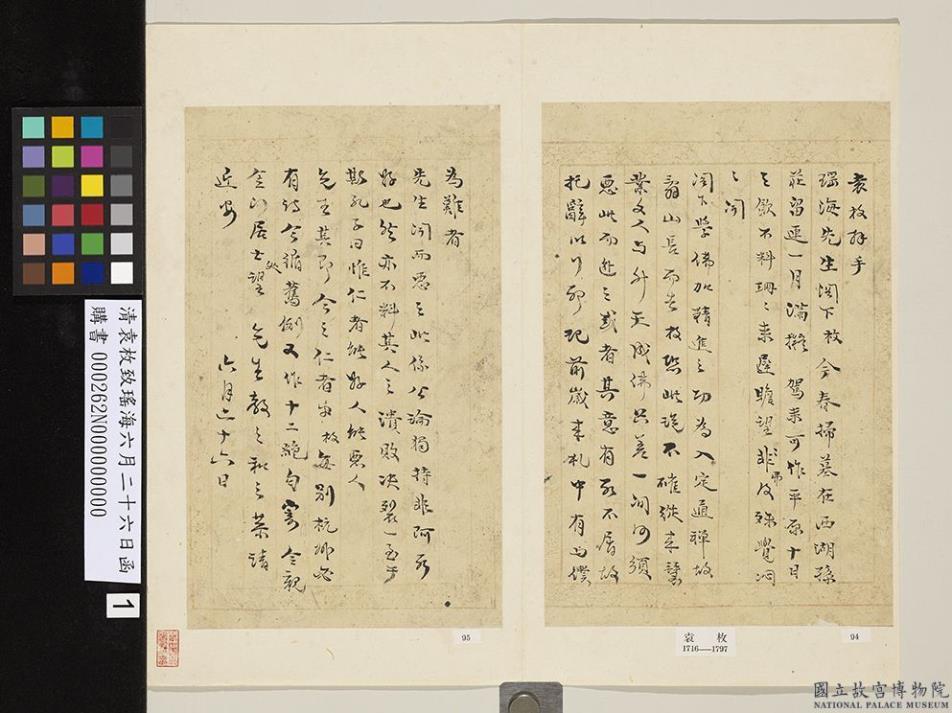 袁枚拜手
瑶海先生閣下枚今春掃墓在西湖孫
莊留連一月滿擬 駕來可作平原十日
之飲不料珊珊來遲瞻望弗及殊覺
閣下學佛加精進之功為入定逼禪故
翁山長而告枚
業文人与升天成佛只差一間何須
惡此而逃之或者其意有所不屑故
托辭以 記前歲來札中有与僕
為難者
先生聞而惡之此係公論獨持非阿所
好也然亦不料其人之潰敗決裂一至于
斯孔子曰惟仁者能好人能惡人
先生其即今之仁者乎枚每別杭州必
有詩今循舊例又作十二絕句寄令親
居士處望 先生教之和之恭請
近安 六月二十六日
94
袁 枚
1716—1797
95
清袁枚致瑤海六月二十六日函
購書 000262N000000000
1
國立故宮博物院
NATIONAL PALACE MUSEUM